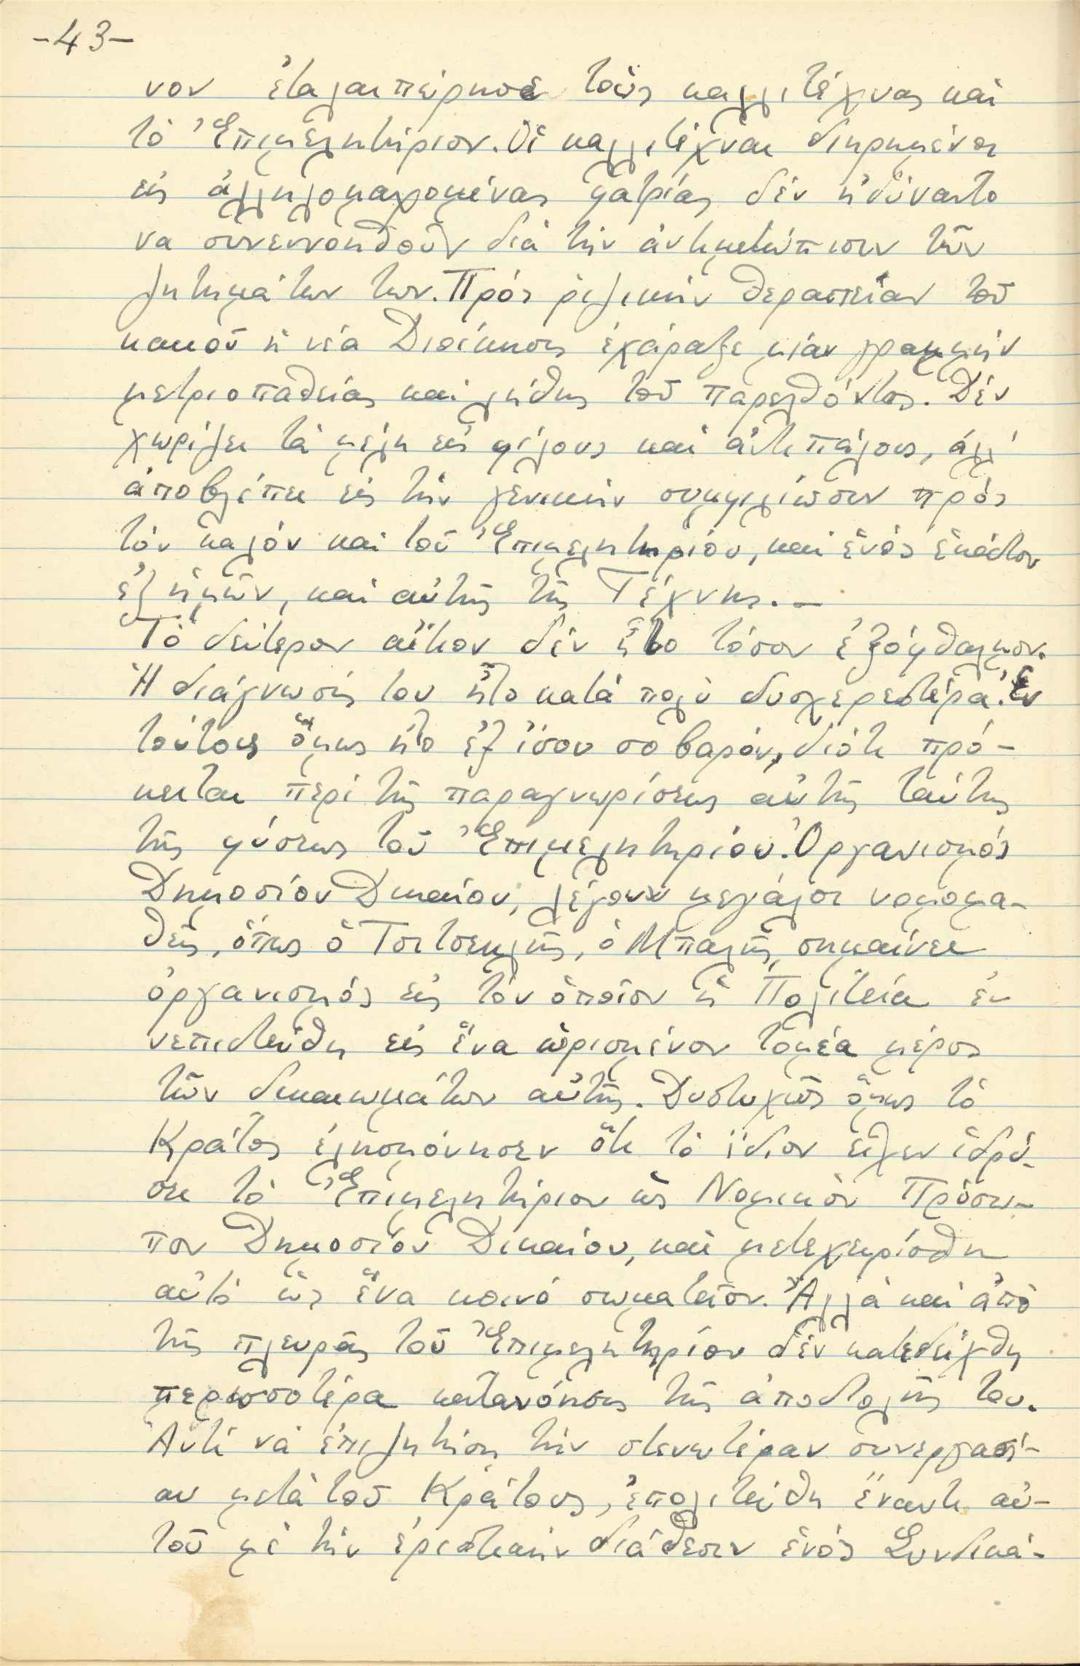 -43-
νον ἐταλαιπώρησε τοὺς καλλιτέχνας καὶ
τὸ Ἐπιμελητήριον. Οἱ καλλιτέχναι διῃρημένοι
εἰς ἀλληλομαχομένας φατρίας δέν ἠδύναντο
να συνεννοηθοῦν διά τὴν ἀντιμετώπισιν τῶν
ζητημάτων των. Πρός ριζικήν θεραπείαν τοῦ
κακοῦ ἡ νέα Διοίκησις ἐχάραξε μίαν γραμμήν
μετριοπαθείας καί λήθης τοῦ παρελθόντος. Δέν
χωρίζει τά μέλη εἰς φίλους καί ἀντιπάλους, ἀλλ'
ἀποβλέπει εἰς τήν γενικήν συμφιλίωσιν πρός
τόν καλόν καί τοῦ Ἐπιμελητηρίου, καί ἑνός ἑκάστου
ἐξ ἡμῶν, καί αὐτῆς τῆς Τέχνης.—
Τὸ δεύτερον αἴτιον δέν ἦτο τόσον ἐξόφθαλμον.
Ἡ διάγνωσίς του ἦτο κατά πολύ δυσχερεστέρα. Ἐν
τούτοις ὅμως ἦτο ἐξ ἴσου σοβαρόν, διότι πρό-
κειται περί τῆς παραγνωρίσεως αὐτῆς ταύτης
τῆς φύσεως τοῦ Ἐπιμελητηρίου. Ὀργανισμός
Δημοσίου Δικαίου, λέγουν μεγάλοι νομομα-
θεῖς, ὅπως ὁ Τσιτσεκλῆς, ὁ Μπαλῆς, σημαίνει
ὀργανισμός εἰς τόν ὁποῖον ἡ Πολιτεία ἐ-
νεπιστεύθη εἰς ἕνα ὡρισμένον τομέα μέρος
τῶν δικαιωμάτων αὐτῆς. Δυστυχῶς ὅμως τό
Κράτος ἐλησμόνησεν ὅτι τό ἴδιον εἶχεν ἱδρύ-
σει τό Ἐπιμελητήριον ὡς Νομικόν Πρόσω-
πον Δημοσίου Δικαίου, καί μετεχειρίσθη
αὐτό ὡς ἕνα κοινό σωματεῖον. Ἀλλά καί ἀπό
τῆς πλευρᾶς τοῦ Ἐπιμελητηρίου δέν κατεδείχθη
περισσοτέρα κατανόησις τῆς ἀποστολῆς του.
Ἀντί νά ἐπιζητήσῃ τήν στενωτέραν συνεργασί-
αν μετά τοῦ Κράτους, ἐπολιτεύθη ἔναντι αὐ-
τοῦ μέ τήν ἐριστικήν διάθεσιν ἑνός Συνδικά-